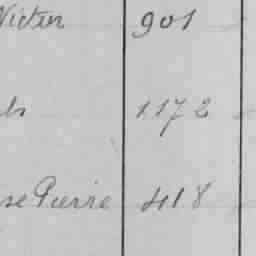 Victor 901
ls 1172
se Pierre 418